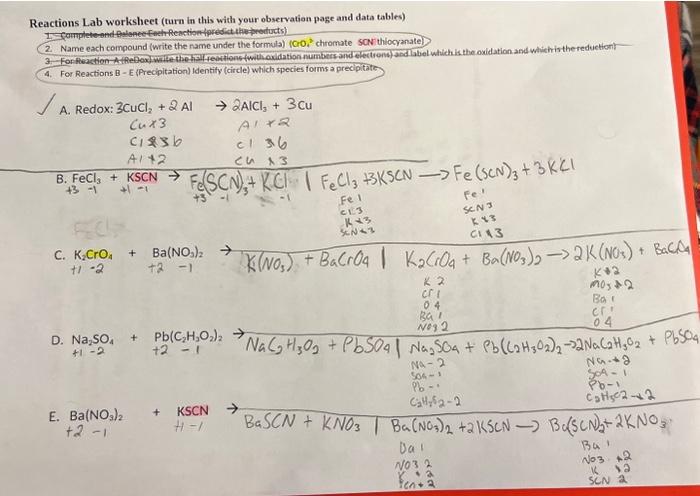 Reactions Lab worksheet (turn in this with your observation page and data tables)
1. Complete and Balance Each Reaction (predict the products)
2. Name each compound (write the name under the formula) (CrO₄²⁻ chromate SCN⁻ thiocyanate)
3. For Reaction A (ReDox) write the half reactions (with oxidation numbers and electrons) and label which is the oxidation and which is the reduction)
4. For Reactions B - E (Precipitation) Identify (circle) which species forms a precipitate
A. Redox: 3CuCl₂ + 2 Al → 2AlCl₃ + 3Cu
Cu x3 Al x2
Cl 6 Cl 6
Al x2 Cu x3
B. FeCl₃ + KSCN → Fe(SCN)₃ + KCl | FeCl₃ + 3KSCN → Fe(SCN)₃ + 3KCl
+3 -1 +1 -1 +3 -1 -1
Fe 1 Fe 1
Cl 3 SCN 3
K 3 K 3
SCN 3 Cl 3
C. K₂CrO₄ + Ba(NO₃)₂ → K(NO₃) + BaCrO4 | K₂CrO4 + Ba(NO₃)₂ → 2K(NO₃) + BaCrO4
+1 -2 +2 -1
K 2 K 2
Cr 1 NO3 2
O 4 Ba 1
Ba 1 Cr 1
NO3 2 O 4
D. Na₂SO₄ + Pb(C₂H₃O₂)₂ → NaC₂H₃O₂ + PbSO4 | Na₂SO4 + Pb(C₂H₃O₂)₂ → 2NaC₂H₃O₂ + PbSO4
+1 -2 +2 -1
Na - 2 Na - 2
SO4 - 1 SO4 - 1
Pb - 1 Pb - 1
C₂H₃O₂ - 2 C₂H₃O2 - 2
E. Ba(NO₃)₂ + KSCN → BaSCN + KNO₃ | Ba(NO₃)₂ + 2KSCN → Ba(SCN)₂ + 2KNO₃
+2 -1 +1 -1
Ba 1 Ba 1
NO3 2 NO3 2
K 2 K 2
SCN 2 SCN 2